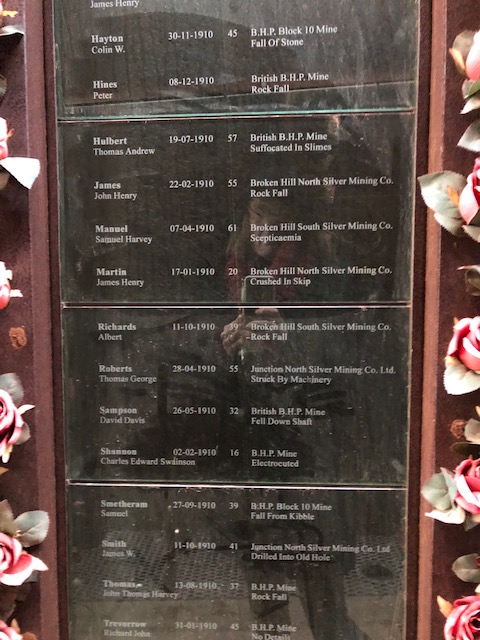 James Henry
Hayton 30-11-1910 45 B.H.P. Block 10 Mine
Colin W. Fall Of Stone
Hines 08-12-1910 British B.H.P. Mine
Peter Rock Fall
Hulbert 19-07-1910 57 British B.H.P. Mine
Thomas Andrew Suffocated In Slimes
James 22-02-1910 55 Broken Hill North Silver Mining Co.
John Henry Rock Fall
Manuel 07-04-1910 61 Broken Hill South Silver Mining Co.
Samuel Harvey Scepticaemia
Martin 17-01-1910 20 Broken Hill North Silver Mining Co.
James Henry Crushed In Skip
Richards 11-10-1910 39 Broken Hill South Silver Mining Co.
Albert Rock Fall
Roberts 28-04-1910 55 Junction North Silver Mining Co. Ltd.
Thomas George Struck By Machinery
Sampson 26-05-1910 32 British B.H.P. Mine
David Davis Fell Down Shaft
Shannon 02-02-1910 16 B.H.P. Mine
Charles Edward Swainson Electrocuted
Smetheram 27-09-1910 39 B.H.P. Block 10 Mine
Samuel Fall From Kibble
Smith 11-10-1910 41 Junction North Silver Mining Co. Ltd
James W. Drilled Into Old Hole
Thomas 13-08-1910 37 B.H.P. Mine
John Thomas Harvey Rock Fall
Trevorrow 31-03-1910 45 B.H.P. Mine
Richard John No Details